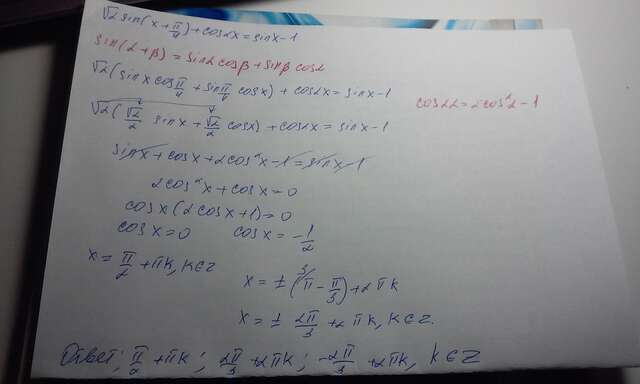 √2 sin(x + π/4) + cos2x = sinx - 1
sin(α + β) = sinα cosβ + sinβ cosα
√2 (sinx cos π/4 + sin π/4 cosx) + cos2x = sinx - 1
cos2α = 2cos²α - 1
√2 (√2/2 sinx + √2/2 cosx) + cos2x = sinx - 1
sinx + cosx + 2cos²x - 1 = sinx - 1
2cos²x + cosx = 0
cosx (2cosx + 1) = 0
cosx = 0 cosx = -1/2
x = π/2 + πk, k∈Z
x = ± (π - π/3) + 2πk
x = ± 2π/3 + 2πk, k∈Z.
Ответ: π/2 + πk; 2π/3 + 2πk; -2π/3 + 2πk, k∈Z